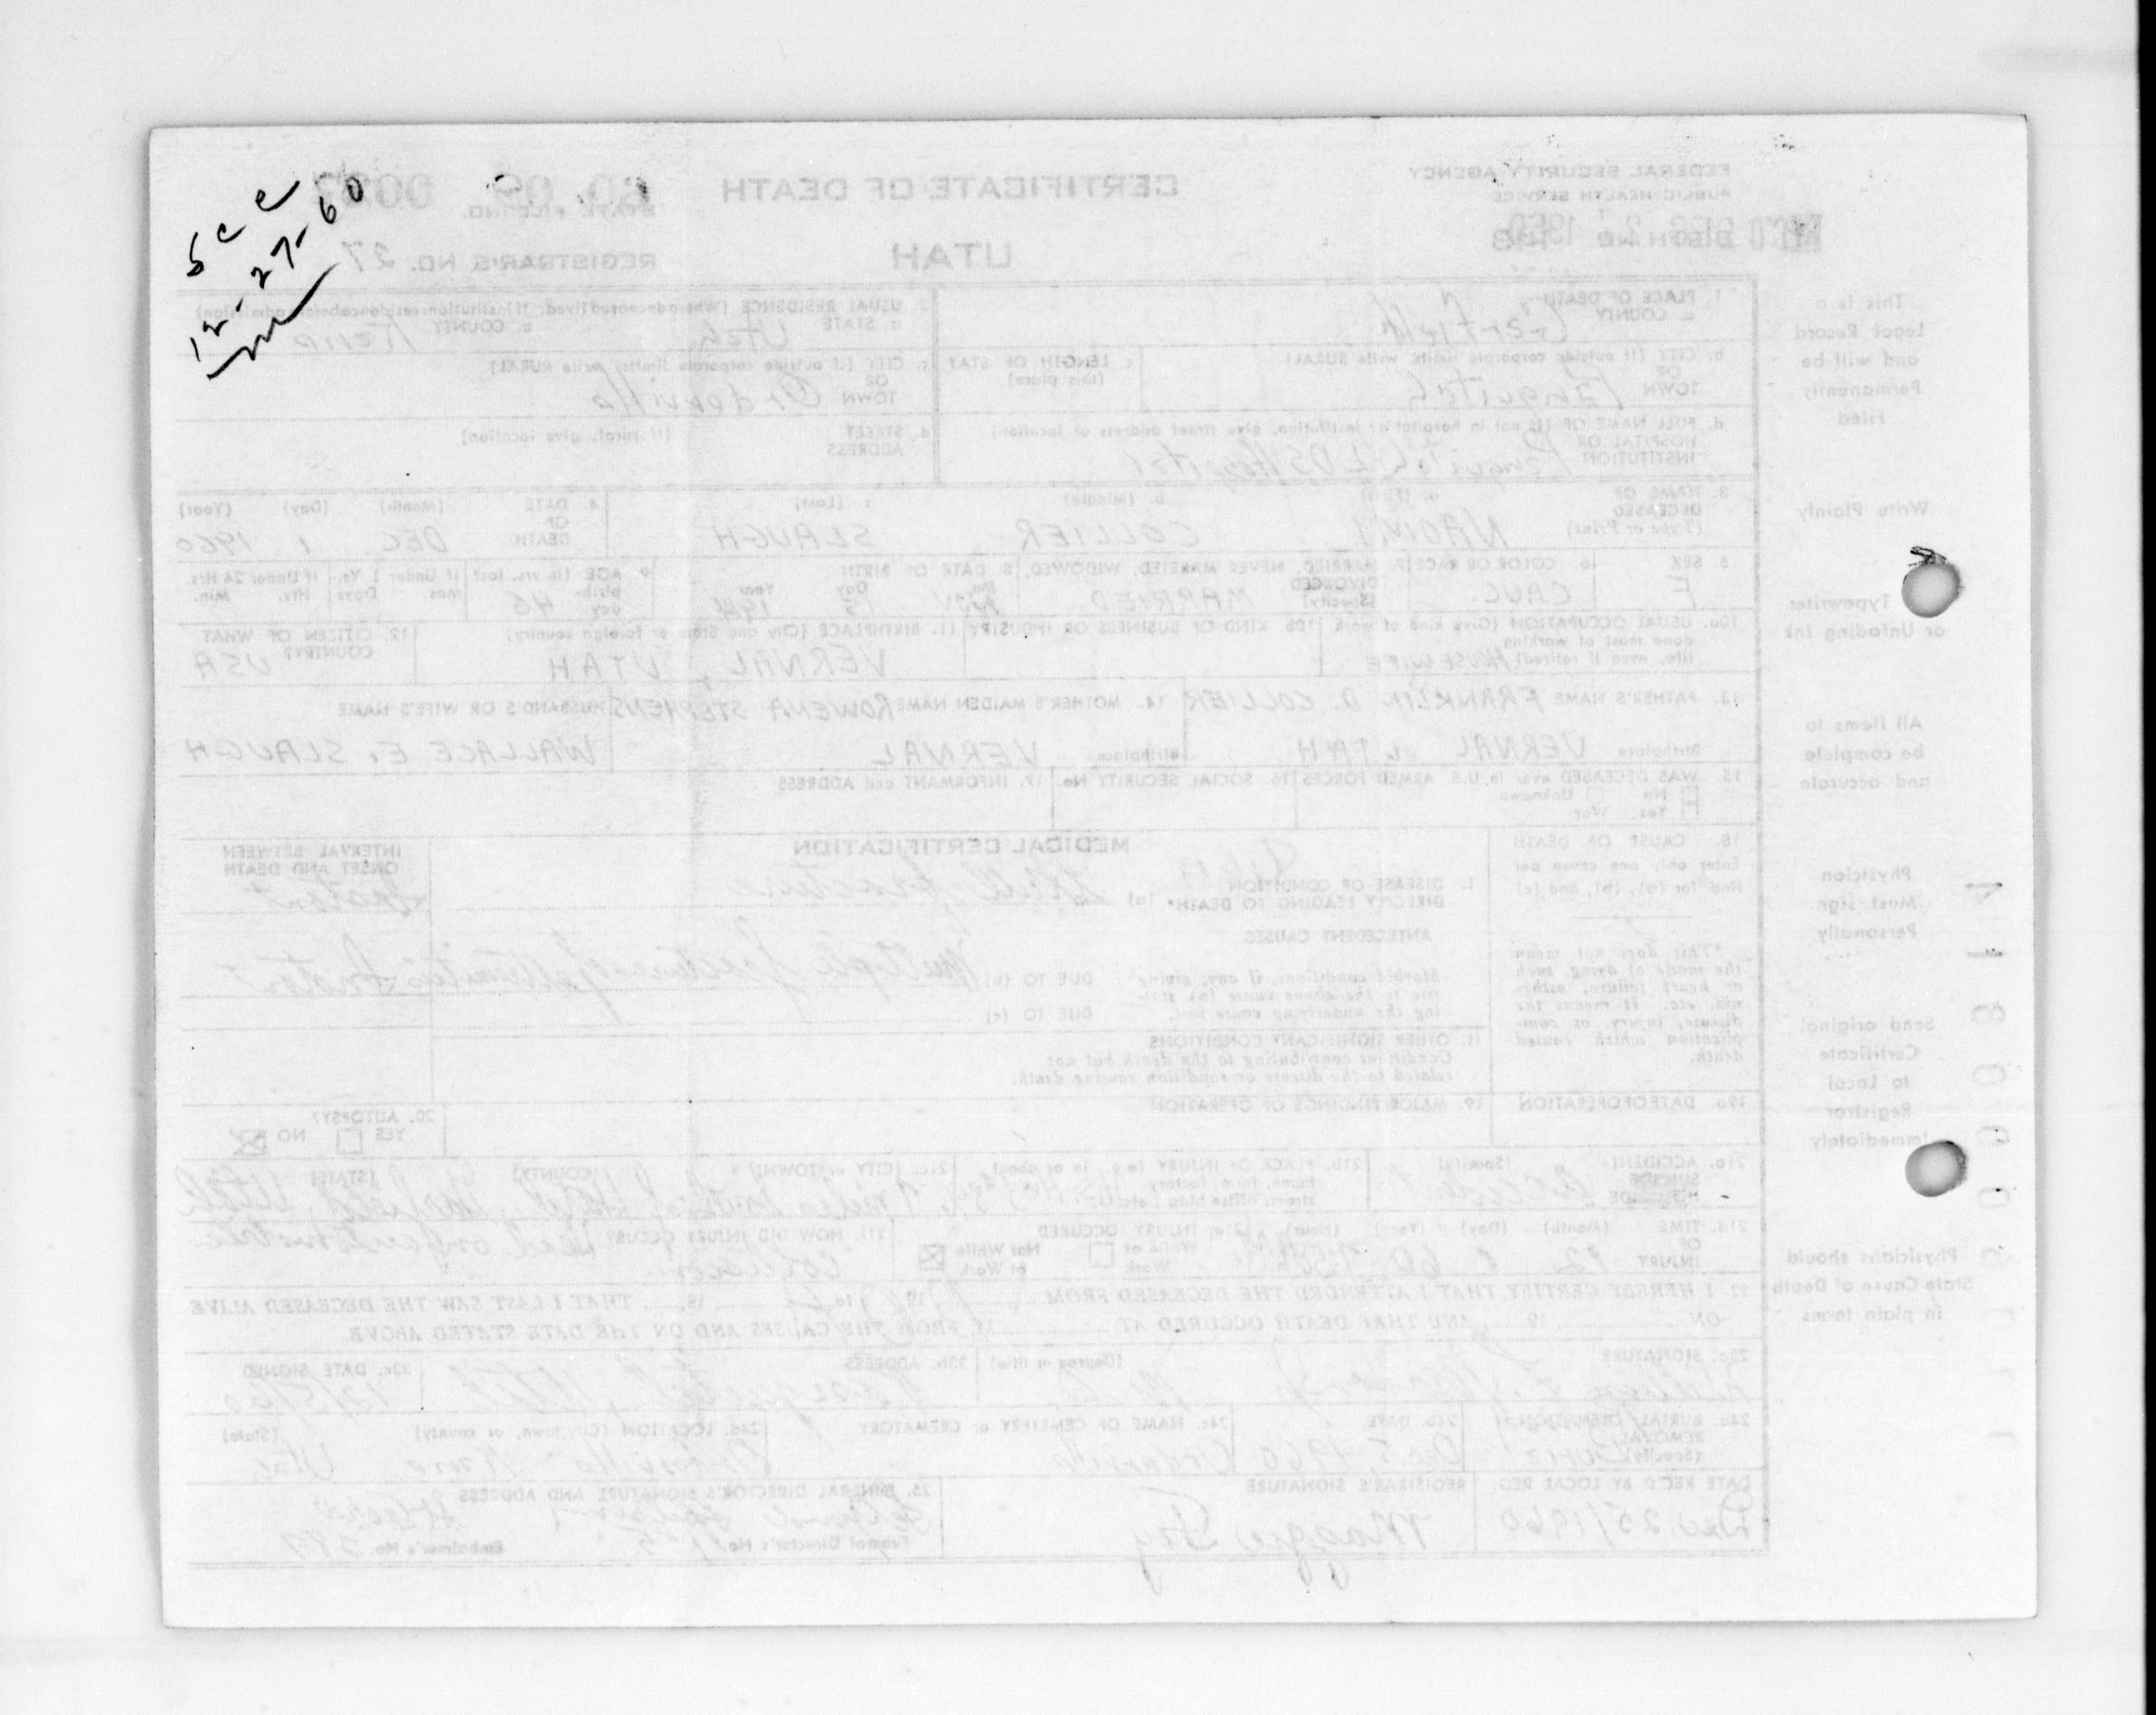 See
12-27-60
CERTIFICATE OF DEATH
UTAH
FEDERAL SECURITY AGENCY
PUBLIC HEALTH SERVICE
STATE FILE NO.
REGISTRAR'S NO. 27
This is a
Legal Record
and will be
Permanently
Filed
1. PLACE OF DEATH
a. COUNTY Garfield
2. USUAL RESIDENCE (Where deceased lived. If institution: residence before admission)
a. STATE Utah b. COUNTY Kane
b. CITY (If outside corporate limits, write RURAL)
OR
TOWN Panguitch
c. LENGTH OF STAY
(this place)
c. CITY (If outside corporate limits, write RURAL)
OR
TOWN Orderville
d. FULL NAME OF (If not in hospital or institution, give street address or location)
HOSPITAL OR
INSTITUTION Panguitch LDS Hospital
d. STREET (If rural, give location)
ADDRESS
Write Plainly
3. NAME OF
DECEASED
(Type or Print)
a. (First) b. (Middle) c. (Last)
NAOMI COLLIER SLAUGH
4. DATE (Month) (Day) (Year)
OF
DEATH DEC. 1 1960
Typewriter
or Unfading Ink
5. SEX
F
6. COLOR OR RACE
CAUC.
7. MARRIED, NEVER MARRIED, WIDOWED,
DIVORCED
(Specify) MARRIED
8. DATE OF BIRTH
Mo. Day Year
NOV 15
9. AGE (In yrs. last
birth-
day) 46
If Under 1 Yr. If Under 24 Hrs.
Mos. Days Hrs. Min.
10a. USUAL OCCUPATION (Give kind of work
done most of working
life, even if retired) HOUSEWIFE
10b. KIND OF BUSINESS OR INDUSTRY
11. BIRTHPLACE (City and State or foreign country)
VERNAL, UTAH
12. CITIZEN OF WHAT
COUNTRY? USA
All items to
be complete
and accurate
13. FATHER'S NAME FRANKLIN D. COLLIER
Birthplace VERNAL UTAH
14. MOTHER'S MAIDEN NAME ROWENA STEPHENS
Birthplace VERNAL
HUSBAND'S OR WIFE'S NAME
WALLACE E. SLAUGH
15. WAS DECEASED ever in U.S. ARMED FORCES
No Unknown
Yes War
16. SOCIAL SECURITY No.
17. INFORMANT and ADDRESS
Physician
Must sign
Personally
18. CAUSE OF DEATH
Enter only one cause per
line for (a), (b), and (c)
*This does not mean
the mode of dying, such
as heart failure, asthe-
nia, etc. It means the
disease, injury, or com-
plication which caused
death.
MEDICAL CERTIFICATION
I. DISEASE OR CONDITION
DIRECTLY LEADING TO DEATH* (a) Skull fracture
ANTECEDENT CAUSES
Morbid conditions, if any, giving
rise to the above cause (a) stat-
ing the underlying cause last.
DUE TO (b) Multiple fractures of extremities
DUE TO (c)
II. OTHER SIGNIFICANT CONDITIONS
Conditions contributing to the death but not
related to the disease or condition causing death.
INTERVAL BETWEEN
ONSET AND DEATH
Instant
Instant
Send original
Certificate
to Local
Registrar
Immediately
19a. DATE OF OPERATION
19. MAJOR FINDINGS OF OPERATION
20. AUTOPSY?
YES NO
21a. ACCIDENT (Specify)
SUICIDE
HOMICIDE Accident
21b. PLACE OF INJURY (e.g., in or about
home, farm, factory,
street, office bldg., etc.)
21c. (CITY or TOWN) (COUNTY) (STATE)
Garfield, Utah
Physicians should
State Cause of Death
in plain terms
21d. TIME (Month) (Day) (Year) (Hour)
OF
INJURY 12 1 60
21e. INJURY OCCURED
While at Work
Not While at Work
21f. HOW DID INJURY OCCUR? Head on automobile
collision.
22. I HEREBY CERTIFY THAT I ATTENDED THE DECEASED FROM 19 to 19 THAT I LAST SAW THE DECEASED ALIVE
ON 19 AND THAT DEATH OCCURED AT M FROM THE CAUSES AND ON THE DATE STATED ABOVE.
23a. SIGNATURE (Degree or title)
23b. ADDRESS
Panguitch, Utah
23c. DATE SIGNED
12/5/60
24a. BURIAL, CREMATION,
REMOVAL
(Specify) Burial
24b. DATE
Dec 5, 1960
24c. NAME OF CEMETERY or CREMATORY
Orderville
24d. LOCATION (City, town, or county) (State)
Orderville Kane Utah
DATE REC'D BY LOCAL REG.
Dec. 25/1960
REGISTRAR'S SIGNATURE
Maggie Fry
25. FUNERAL DIRECTOR'S SIGNATURE AND ADDRESS
Funeral Director's No.
Embalmer's No.